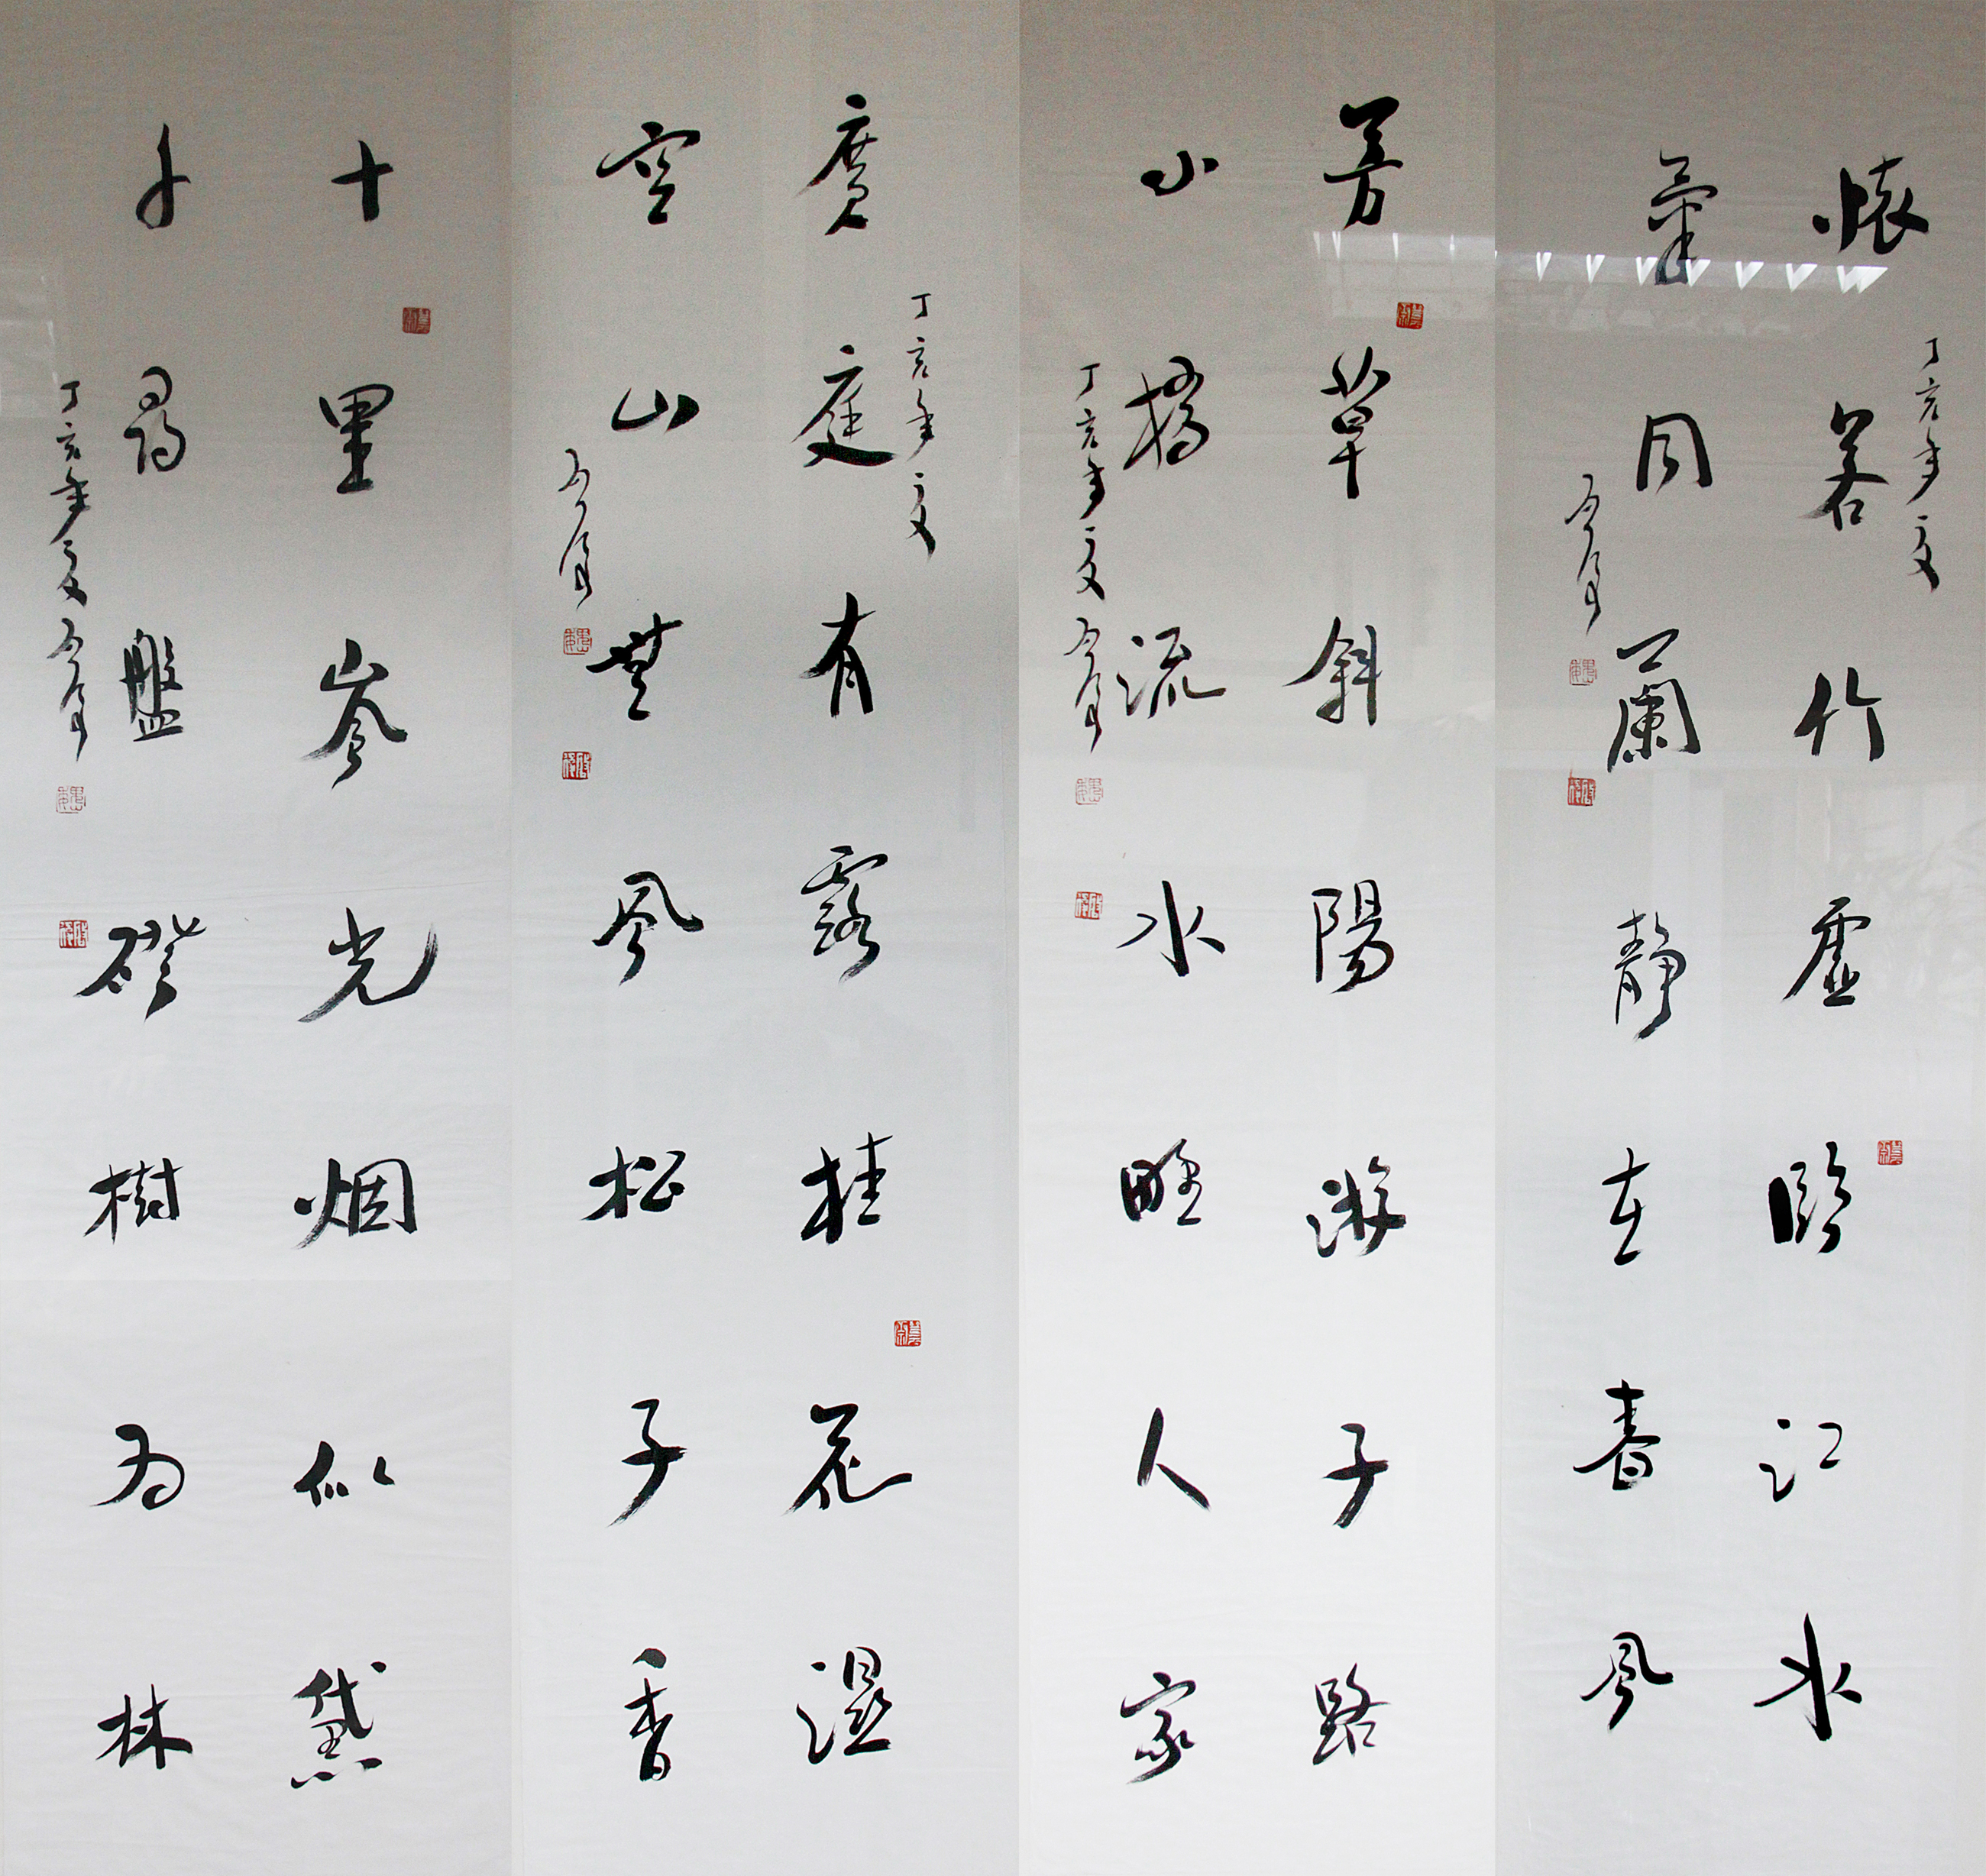 懷若竹虛臨江水
氣同蘭靜在春風
丁亥年夏
芳草斜陽游子路
小橋流水野人家
丁亥年夏
廣庭有露桂花濕
空山無風松子香
丁亥年夏
十里嵐光烟似黛
千尋盤磴樹為林
丁亥年夏